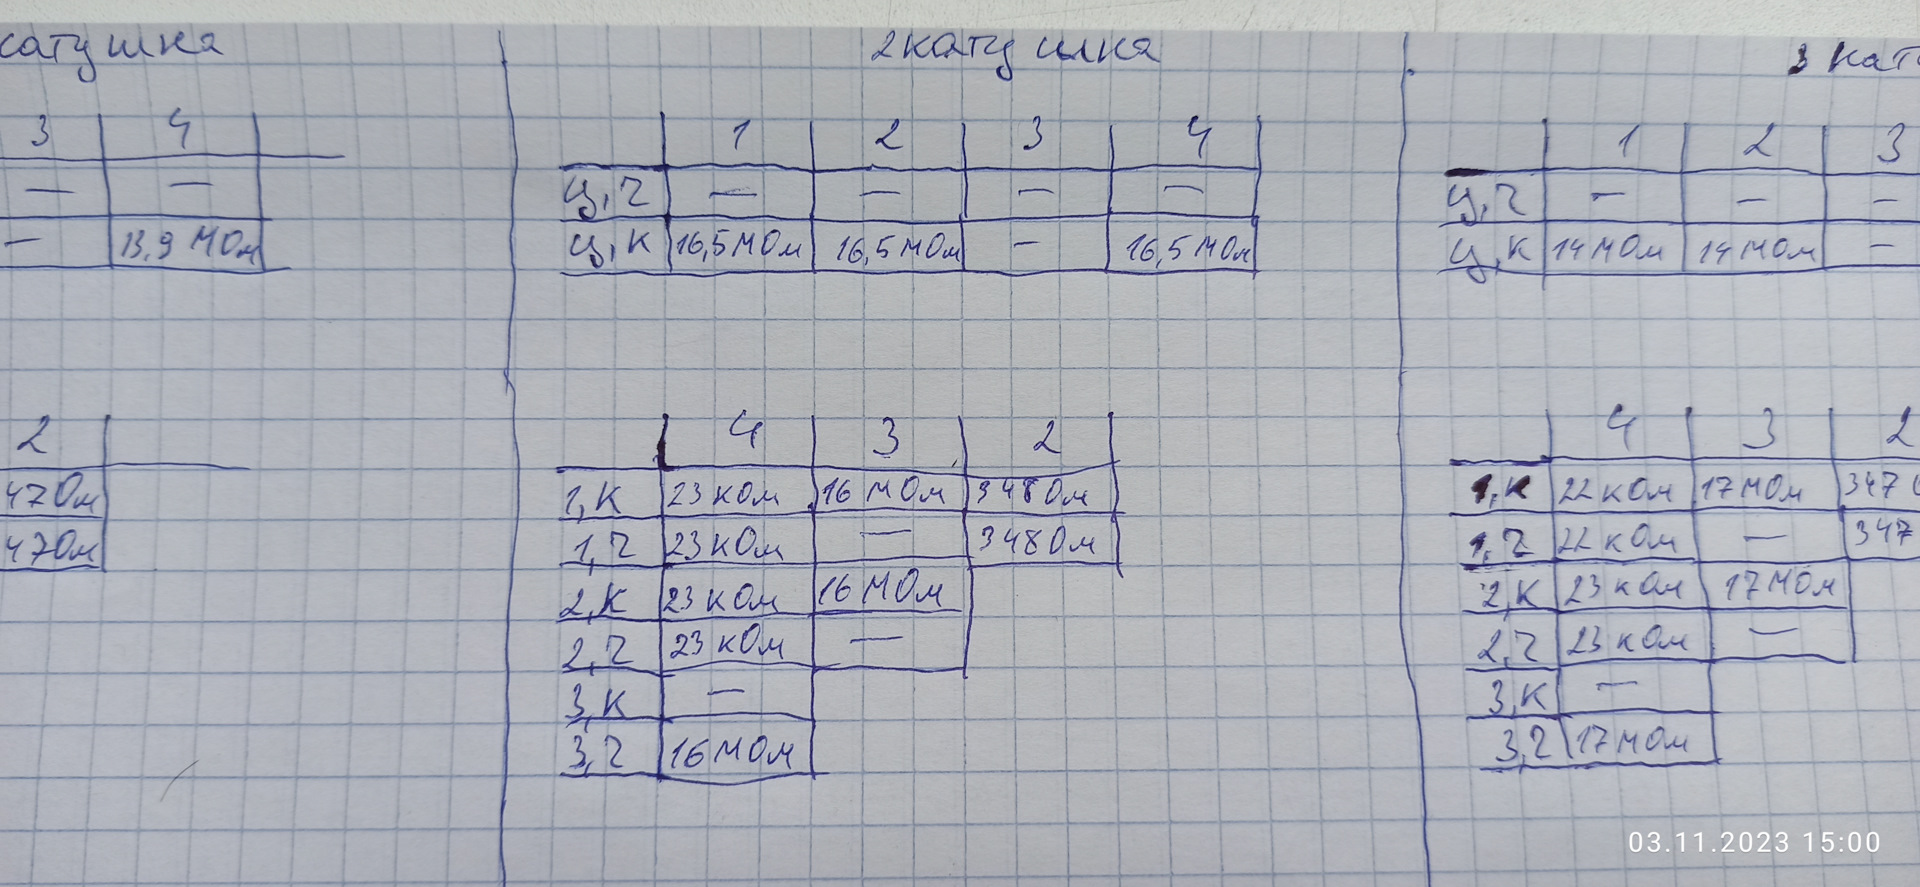 катушка
3 4
— —
— 13,9 МОм
2
47Ом
47Ом
2 катушка
1 2 3 4
ц,ч — — — —
ц,к 16,5МОм 16,5МОм — 16,5МОм
4 3 2
1,К 23кОм 16МОм 348Ом
1,ч 23кОм — 348Ом
2,К 23кОм 16МОм
2,ч 23кОм —
3,К —
3,ч 16МОм
3 кат
1 2 3
ц,ч — — —
ц,к 14МОм 14МОм —
4 3 2
1,К 22кОм 17МОм 347
1,ч 22кОм — 347
2,К 23кОм 17МОм
2,ч 23кОм —
3,К —
3,ч 17МОм
03.11.2023 15:00